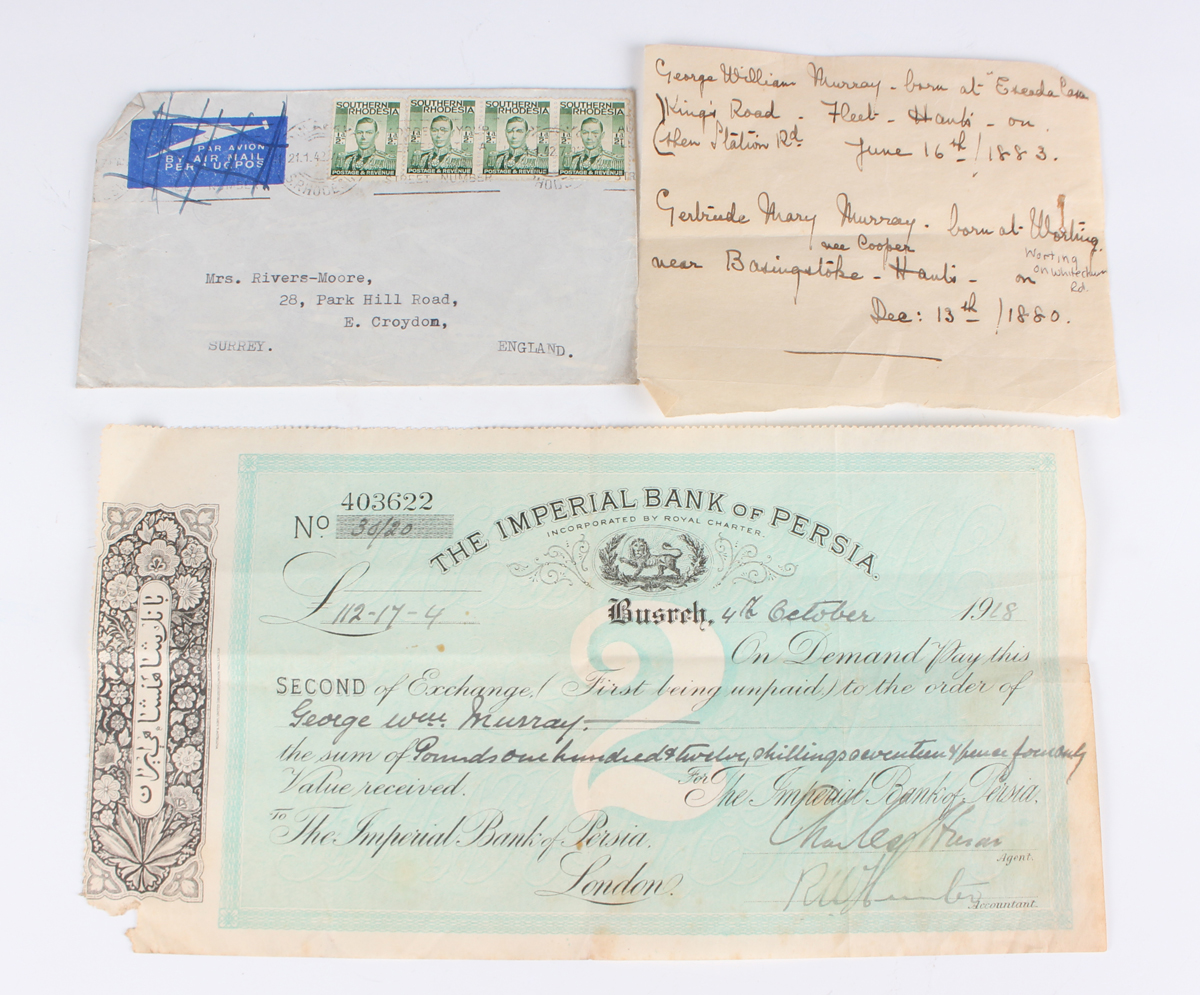 PAR AVION
BY AIR MAIL
PER LUGPOS
21.1.43
SOUTHERN RHODESIA
½ D
POSTAGE & REVENUE
SOUTHERN RHODESIA
½ D
POSTAGE & REVENUE
SOUTHERN RHODESIA
½ D
POSTAGE & REVENUE
SOUTHERN RHODESIA
½ D
POSTAGE & REVENUE
STREET NUMBER
Mrs. Rivers-Moore,
28, Park Hill Road,
E. Croydon,
SURREY. ENGLAND.
George William Murray - born at
King's Road - Fleet - Hants - on
(then Station Rd. June 16th/1883.
Gertrude Mary Murray - born at Worting
nee Cooper
near Basingstoke - Hants - on
Worting
on Whitechurch
Rd.
Dec: 13th/1880.
403622
No. 30/20
THE IMPERIAL BANK OF PERSIA.
INCORPORATED BY ROYAL CHARTER.
£ 112-17-4
Busreh, 4th October 1918
On Demand Pay this
SECOND of Exchange, (First being unpaid) to the order of
George Wm. Murray
the sum of Pounds one hundred & twelve, shillings seventeen & pence four only
Value received. For The Imperial Bank of Persia.
To The Imperial Bank of Persia.
London.
Agent.
Accountant.
2
بانك شاهنشاهی ایران